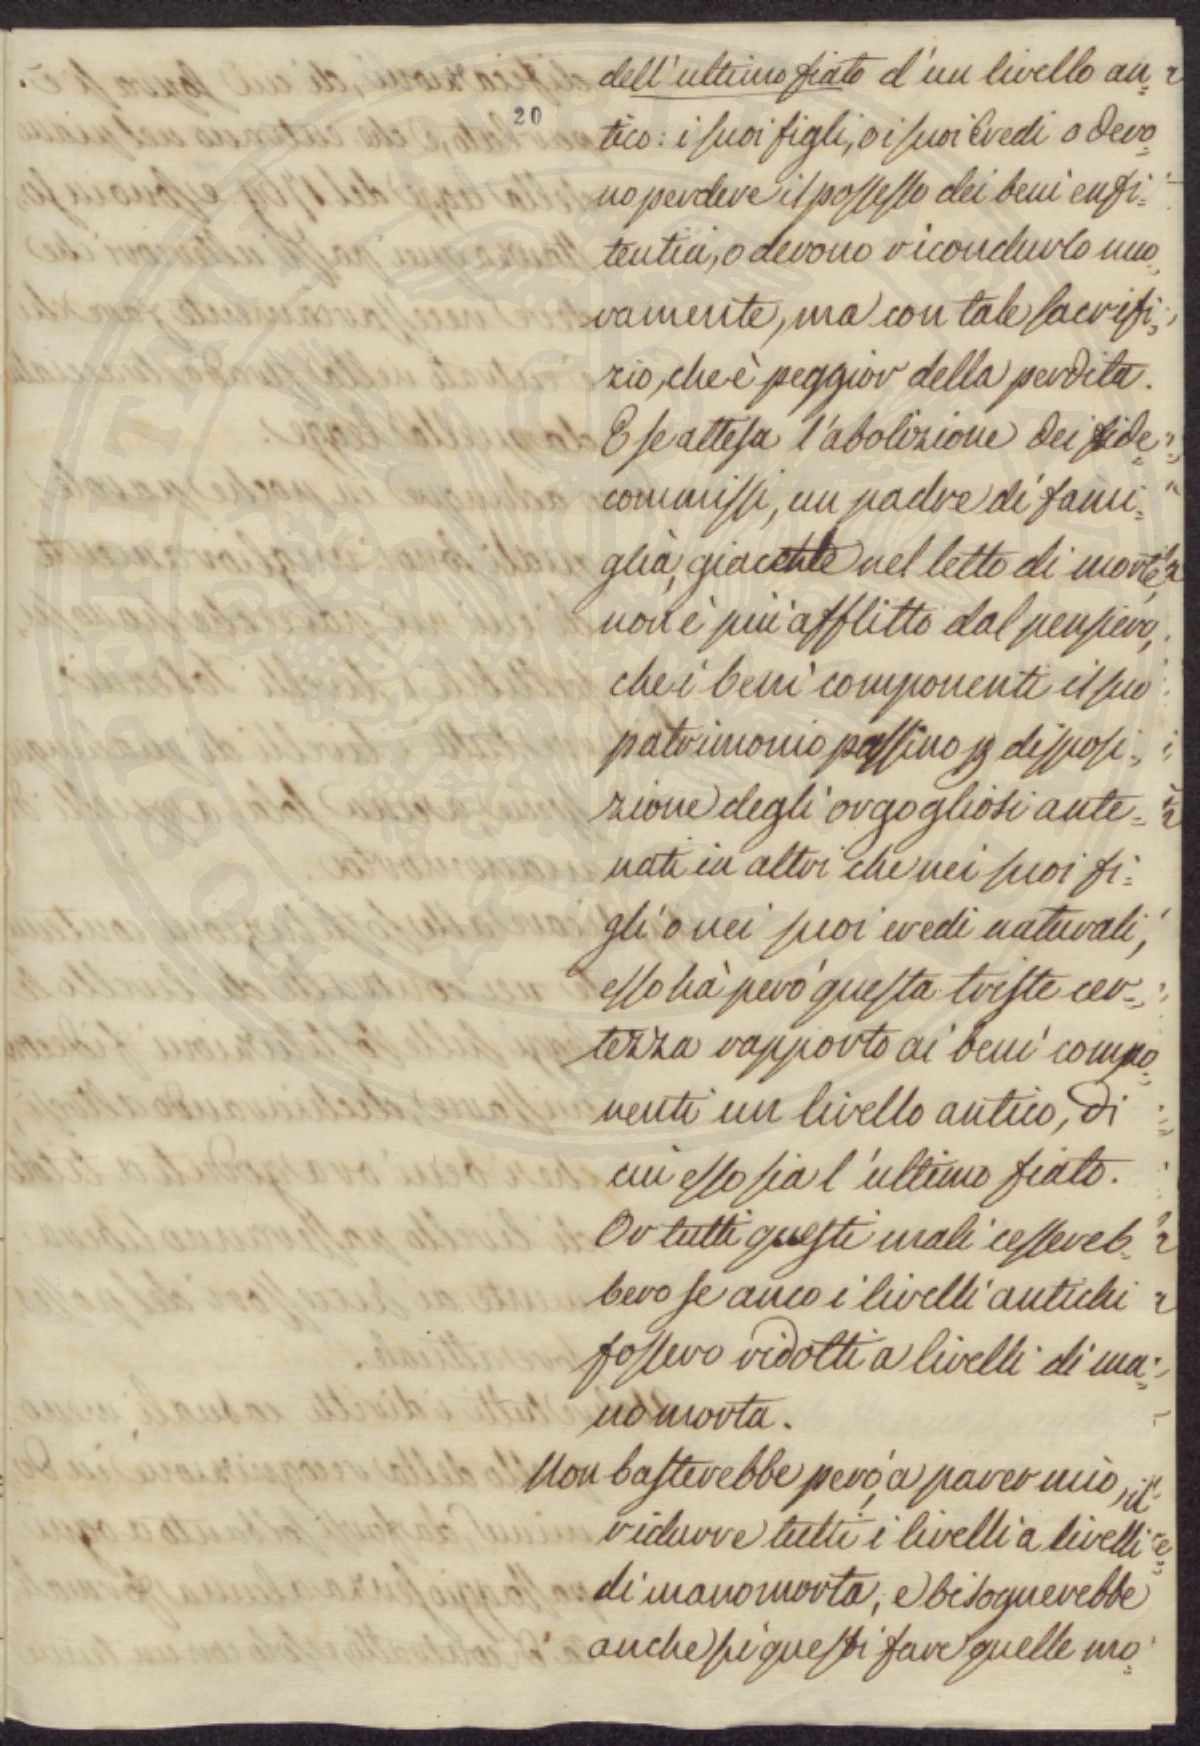 dell'ultimo fiato d'un livello an=
20
tico: i suoi figli, o i suoi Eredi o devo=
no perdere il possesso dei beni enfi=
tentici, o devono ricondurlo nuo=
vamente, ma con tale sacrifi=
zio, che è peggior della perdita.
E se attesa l'abolizione dei fide=
commissi, un padre di fami=
glia, giacente nel letto di morte,
non è più afflitto dal pensiero,
che i beni componenti il suo
patrimonio passino p disposi=
zione degli orgogliosi ante=
nati in altri che nei suoi fi=
gli o nei suoi eredi naturali,
esso hà però questa triste cer=
tezza rapporto ai beni compo=
nenti un livello antico, di
cui esso sia l'ultimo fiato.
Or tutti questi mali cessereb=
bero se anco i livelli antichi
fossero ridotti a livelli di ma=
nomorta.
Non basterebbe però, a parer mio, il
ridurre tutti i livelli a livelli
di manomorta, e bisognerebbe
anche sù questi fare quelle mo=